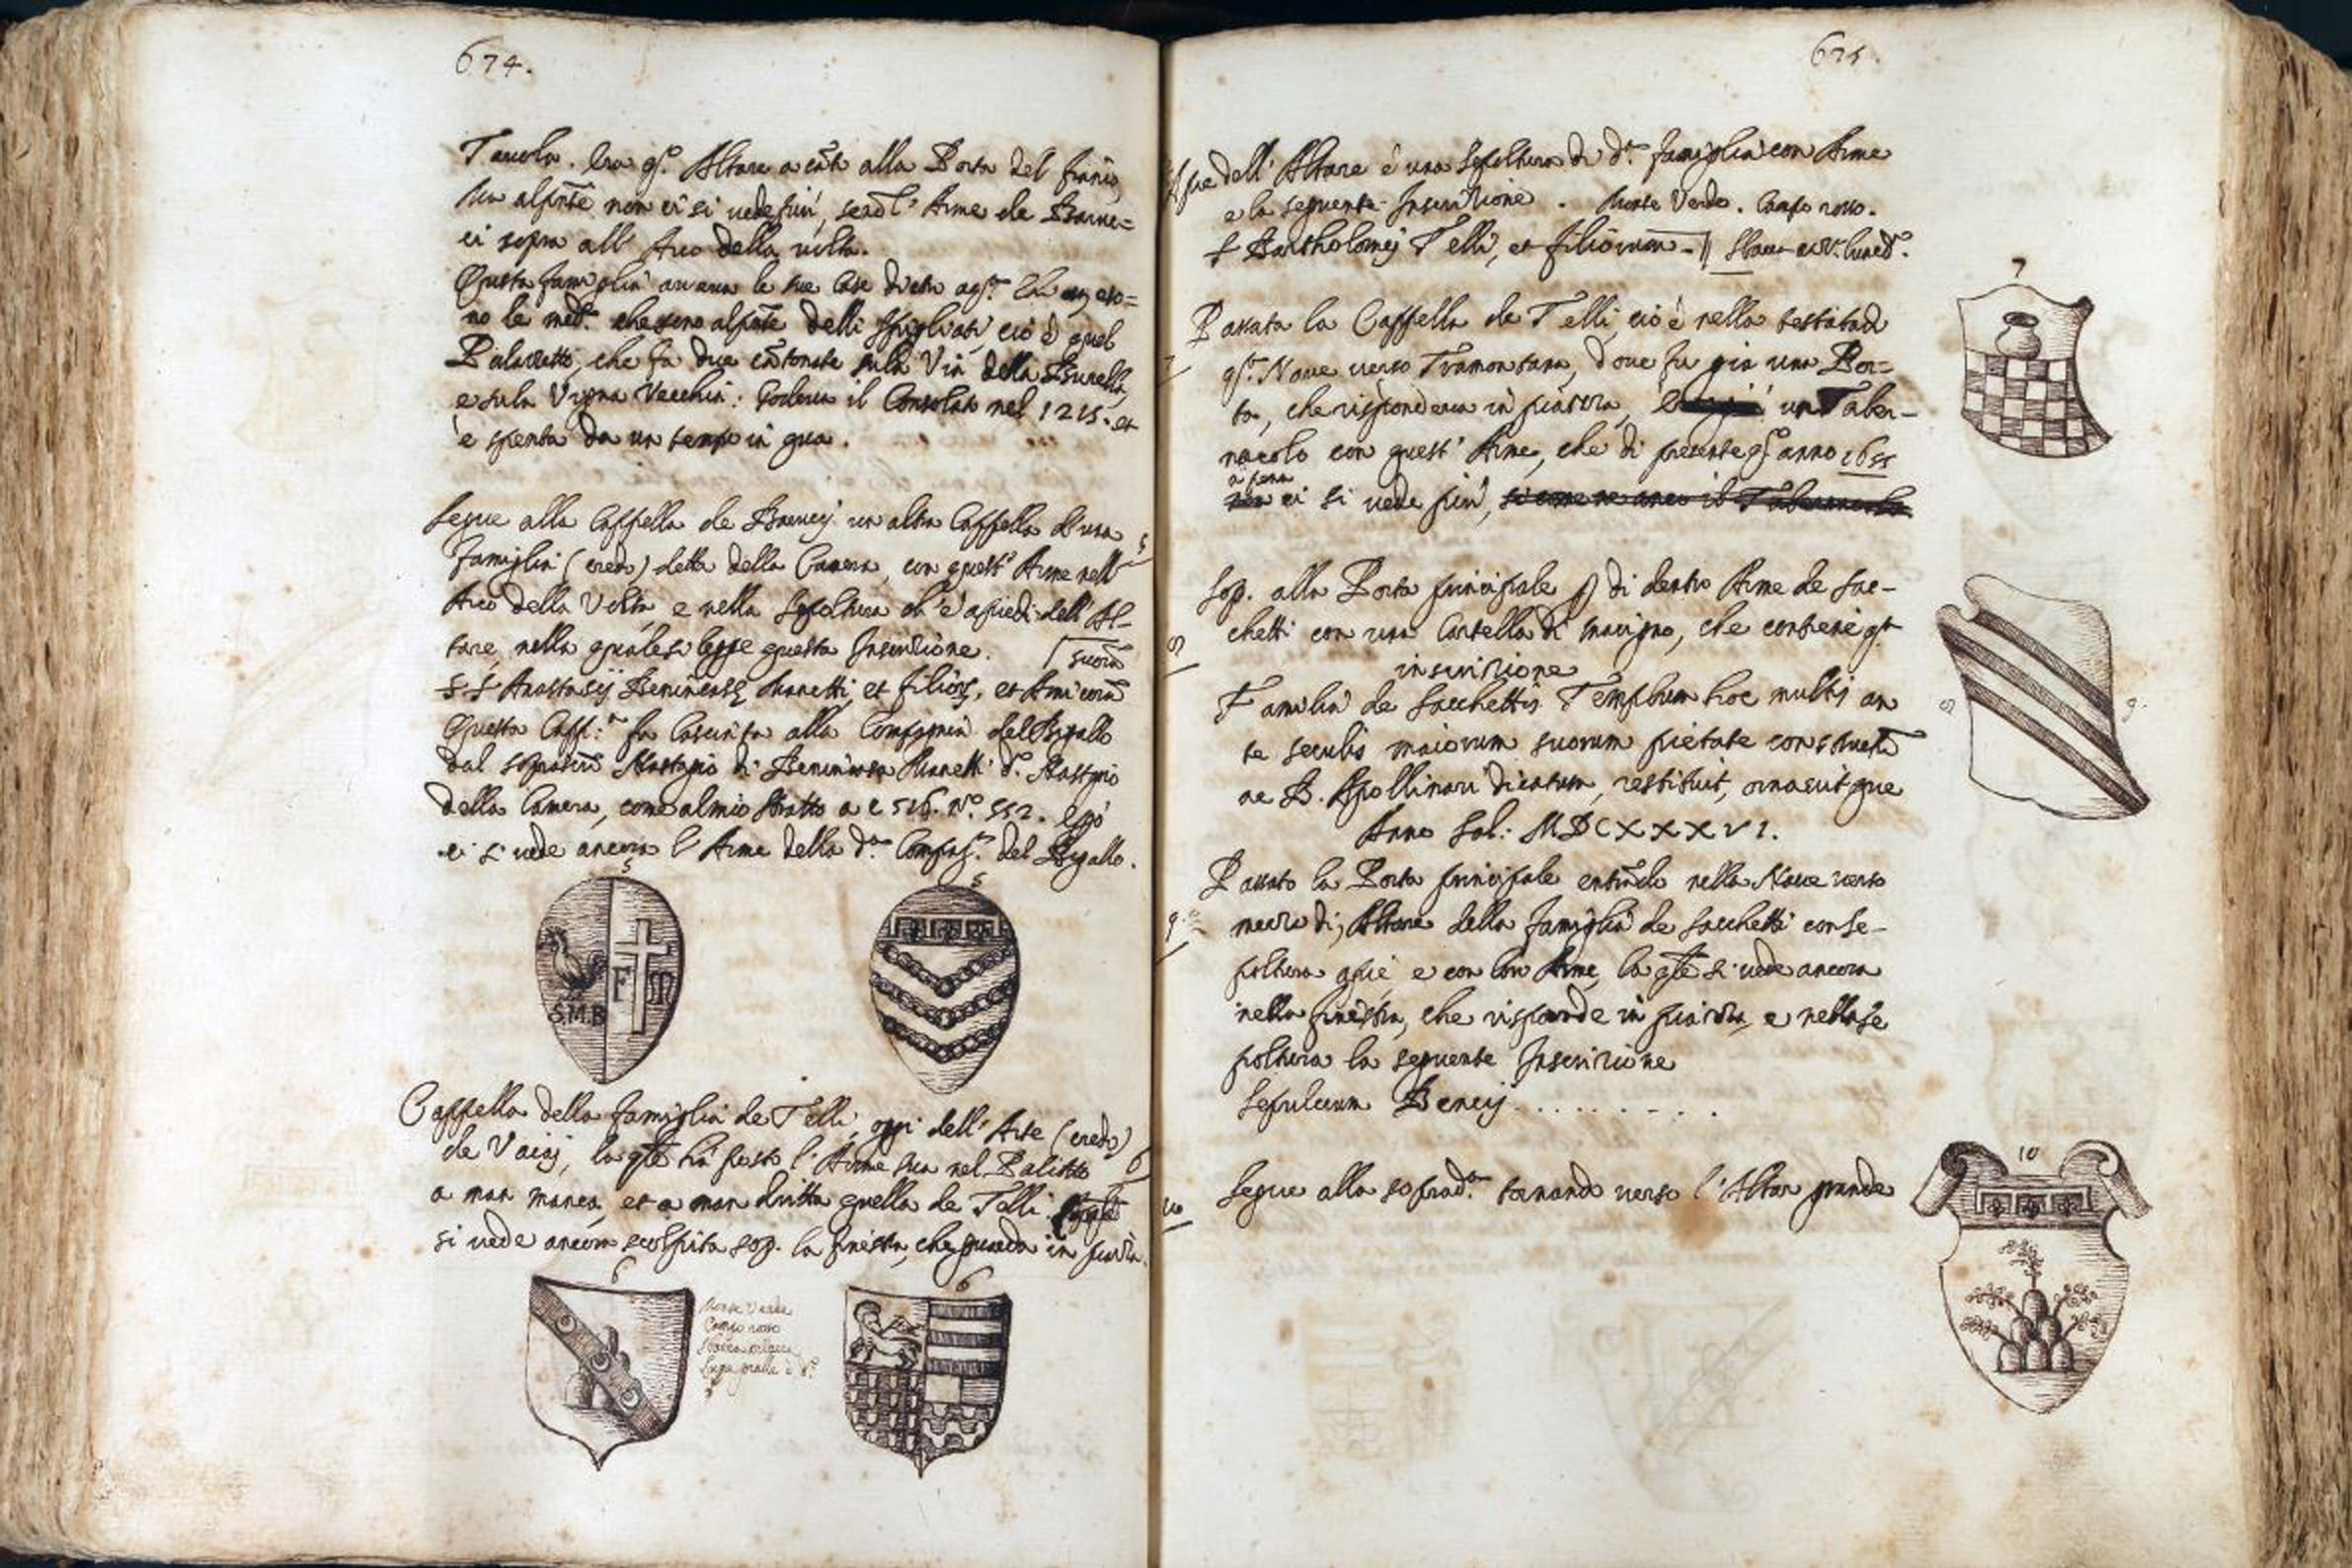 674.
Tauola. Era q.º Altare a cãto alla Porta del fianco
ma alpñte non ci si uede piu, se nõ l'Arme de
ci sopra all'Arco della uolta.
Questa famiglia aueua le sue Case dietro a q.ta
no le med.e che sono alpñte delli Spigliati, ciò è quel
Palazzetto, che fa due cãtonate sulla Via della Burella,
e sula Vigna Vecchia: Godeua il Consolato nel 1215. et
è spenta da un tempo in qua.
Segue alla Cappella de un altra Cappella d'una
famiglia (credo) detta della Camera, con quest'Arme nell'
5
Arco della Volta, e nella Sepoltura ch'è a piedi dell'Al-
tare, nella quale si legge questa Inscrizione.
S Anastasij Benincasę Manetti, et filior, et Amicorũ
suorũ
Questa Capp.a fu lasciata alla Compagnia del Bigallo
dal sopradº Nastagio di Benincasa Manetti dº. Nastagio
della Camera, come al mio Stratto a c 516. Nº. 552. e però
ci si uede ancora l'Arme della d.a Compag.a del Bigallo.
5
5
S.M.B
F M
Cappella della famiglia de Telli, oggi dell'Arte (credo)
de Vaiaj, la qle hà posto l'Arme sua nel Paliotto
6
a man manca, et a man dritta quella de Telli.
si uede ancora scolpita sop. la finestra, che guarda in piazza.
6
6
Monte Verde
Campo rosso
675.
A pie dell'Altare è una sepoltura di d.a famiglia con Arme
e la seguente Inscrizione. Monte Verde. Campo rosso.
S Bartholomej Telli, et filiorum
Passata la Cappella de Telli, ciò è nella testata di
7
q.ta Naue uerso Tramontana, doue fu gia una Por-
ta, che rispondeua in piazza, un Taber-
nacolo con quest'Arme, che di presente q.º anno 1655
a pena
ci si uede piu,
7
Sop. alla Porta principale p di dentro Arme de Sac-
chetti con una Cartella di macigno, che contiene q.ta
8
inscrizione
Familia de Sacchettis Templum hoc multis an
te seculis maiorum suorum pietate constructũ
ac B. Apollinari dicatum, restituit, ornauitque
Anno Sal: MDCXXXVI.
8
9.
Passato la Porta principale entrãdo nella Naue uerso
9.
mezzo dì, Altare della famiglia de Sacchetti con se-
poltura a piè, e con lor Arme, la qle si uede ancora
nella finestra, che risponde in piazza, e nella se
poltura la seguente Inscrizione
Sepulcrum Bencij . . . . . . . . .
Segue alla soprad.a tornando uerso l'Altar grande
10
10